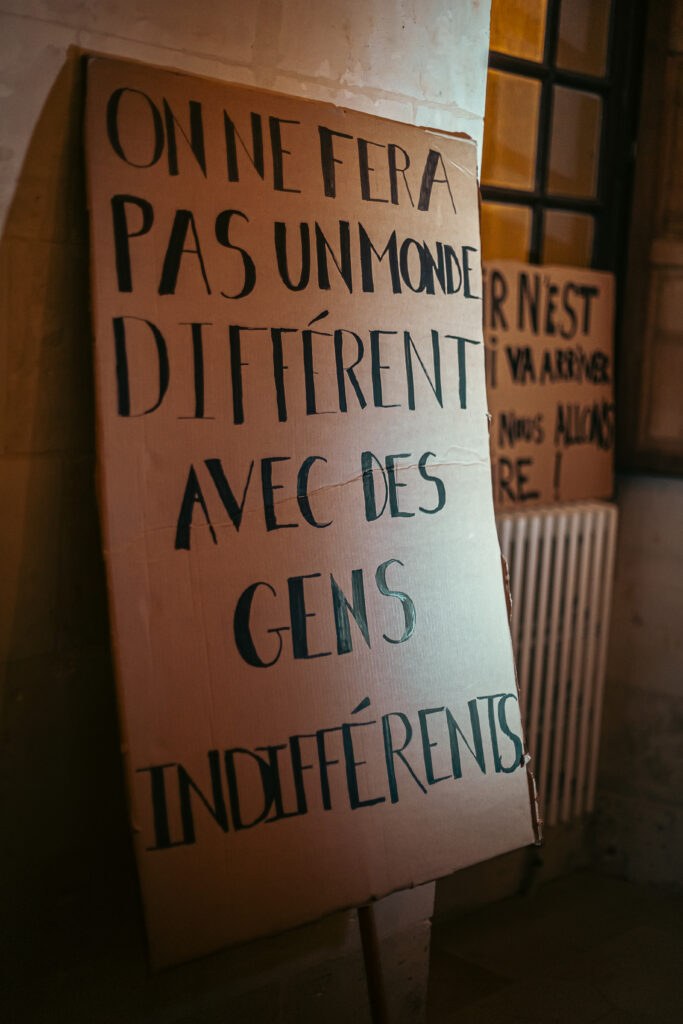 ON NE FERA
PAS UN MONDE
DIFFÉRENT
AVEC DES
GENS
INDIFFÉRENTS
R N'EST
VA ARRIVER
NOUS ALLONS
RE !